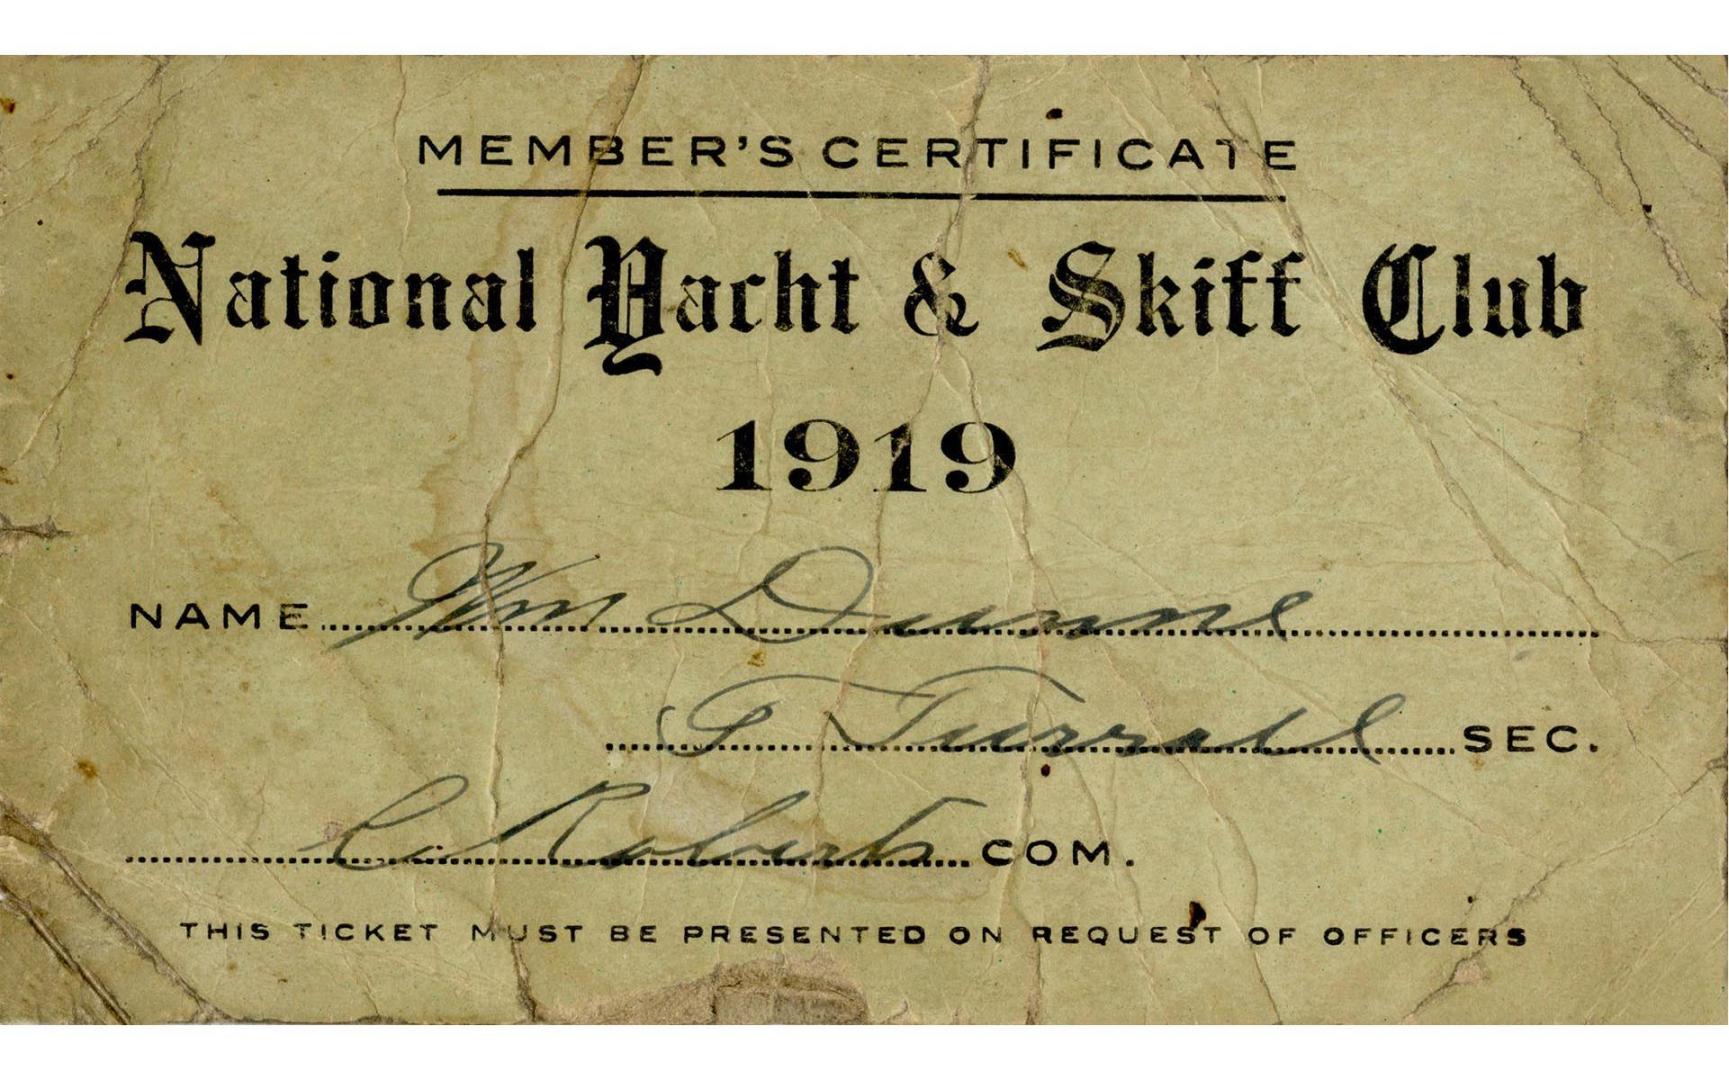 MEMBER'S CERTIFICATE
National Yacht & Skiff Club
1919
NAME Wm Dunne
T Turrall SEC.
C. Roberts COM.
THIS TICKET MUST BE PRESENTED ON REQUEST OF OFFICERS